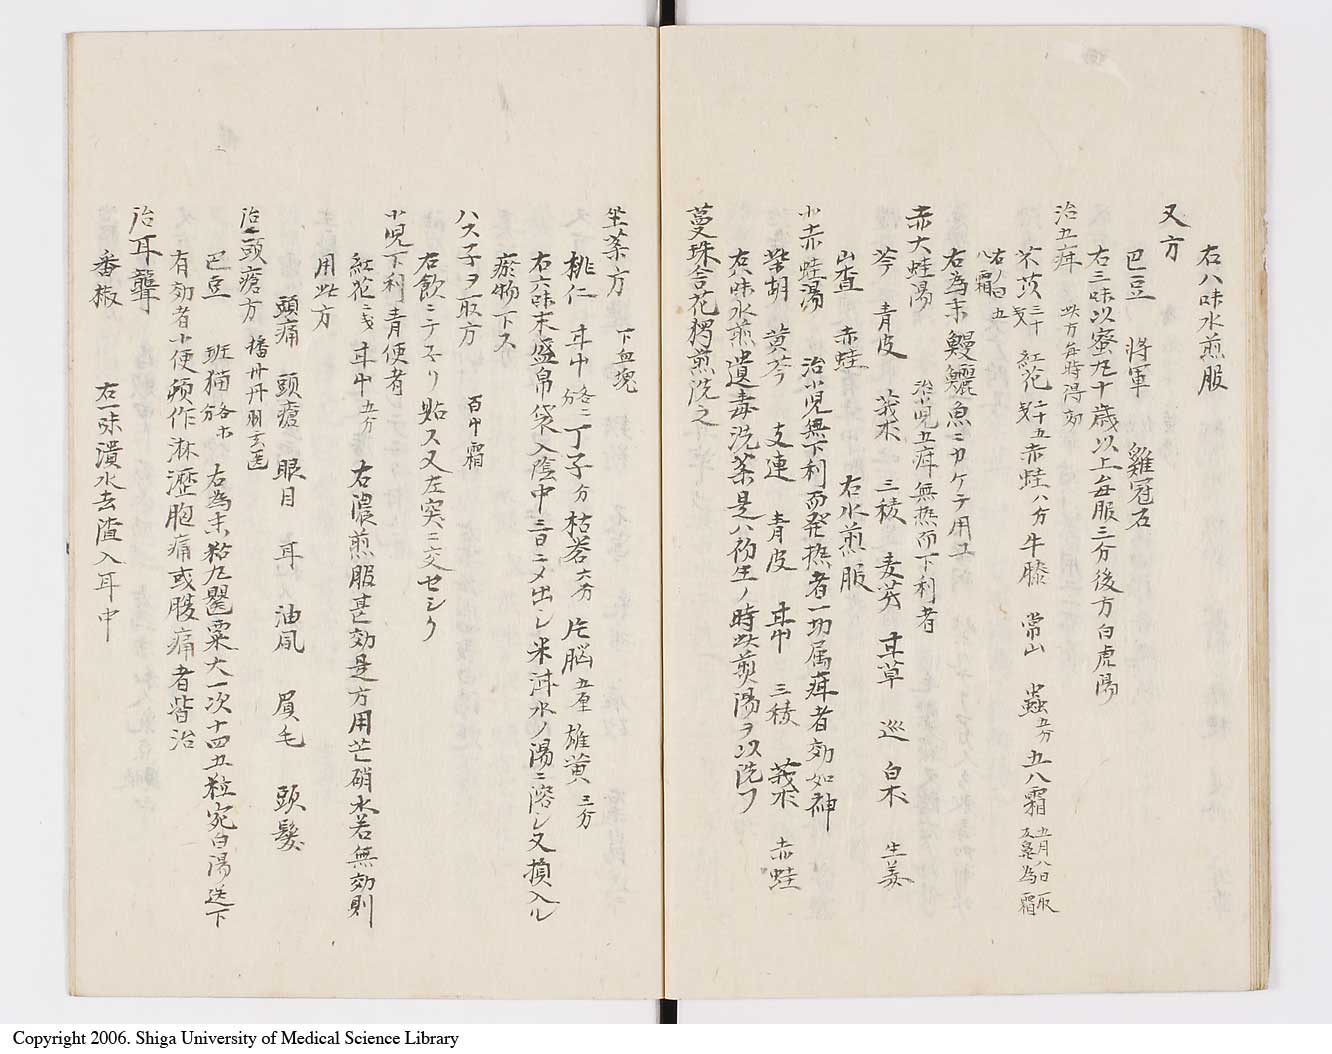 右八味水煎服
又方
巴豆 将軍 雞冠石
右三味以蜜丸十歳以上毎服三分後方白虎湯
治五疳 此方毎時得効
不茨三十 紅花二十五 赤蛙八分 牛膝 常山 蟲五分 五八霜 五月八日取 為霜
右ノ五八霜
右為末鰻鱺魚ニカケテ用ユ
赤大蛙湯 治小児五疳無热而下利者
芩 青皮 莪朮 三稜 麦芽 甘草 巡 白朮 生姜
山査 赤蛙 右水煎服
小赤蛙湯 治小児無下利而発热者一切属疳者効如神
柴胡 黄芩 支連 青皮 甘中 三稜 莪朮 赤蛙
右八味水煎遺毒洗薬是ハ初生ノ時此煎湯ヲ以洗フ
蔓珠舎花独煎洗之
坐薬方 下血塊
桃仁 甘中各二分 丁子分 枯礬六分 片脳五厘 雄黄三分
右六味末盛帛袋入陰中三日ニメ出シ米泔水ノ湯ニ溶シ又換入ル
瘀物下ス
ハス子ヲ取方 百中霜
右飲ニテ子リ貼ス又左突ニ交セシク
小児下利青便者
紅花二戔 甘中五分 右濃煎服甚効是方用芒硝水若無効則
用此方
頭痛 頭瘡 眼目 耳 油風 眉毛 頭髪
治頭瘡方 播州丹羽玄医
巴豆 班猫各ホ分 右為末粘丸罌粟大一次十四五粒宛白湯送下
有効者小便頻作淋瀝胞痛或腹痛者皆治
治耳聾
番椒 右一味漬水去渣入耳中
Copyright 2006. Shiga University of Medical Science Library